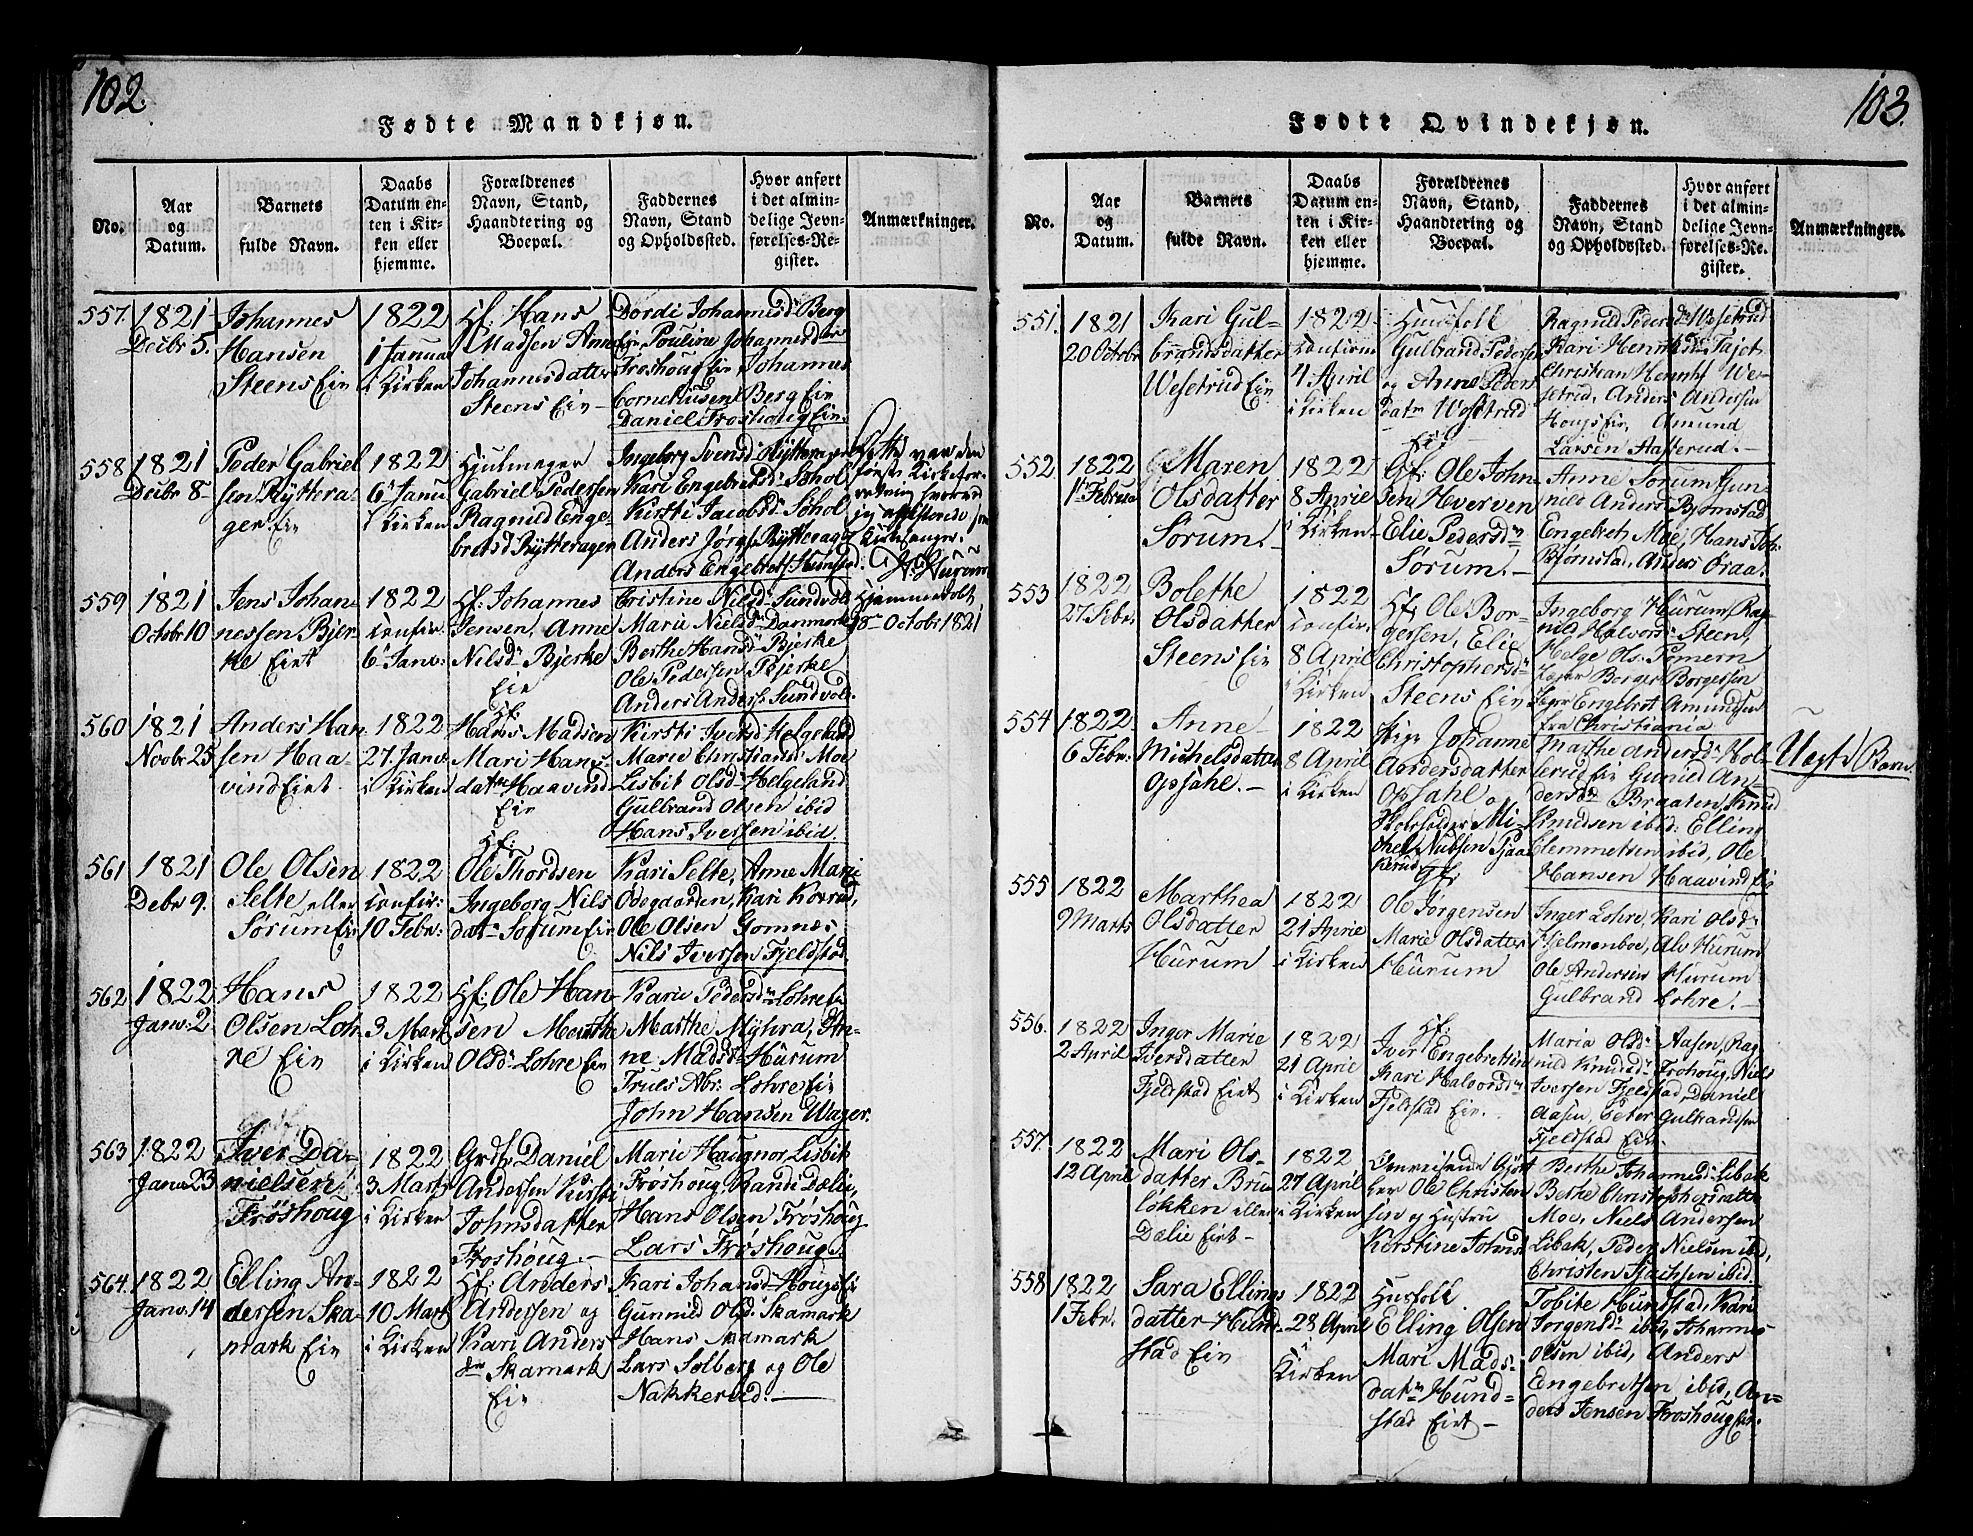 102.
Fødte Mandkjøn.
No.
Aar
og
Datum.
Barnets
fulde Navn.
Daabs
Datum en-
ten i Kir-
ken eller
hjemme.
Forældrenes
Navn, Stand,
Haandtering og
Boepæl.
Faddernes
Navn, Stand
og Opholdssted.
Hvor anført
i det almin-
delige Jevn-
førelses-Re-
gister.
Anmærkninger.
557.
1821
Decbr 5.
Johannes
Hansen
Steens Eir
1822
1 Januar
i Kirken
Gf: Hans
Madsen Anne
Johannesdatter
Steens Eir
Dordi Johannesd: Berg
Eir, Pouline Johannesd:
Frøshoug Eir Johannes
Corneliusen Berg Eir
Daniel Frøshoug Eir.
558
1821
Decbr 8
Peder Gabriel
sen Ryttera-
ger Eir
1822
6 Janu
i Kirken
Hjulmager
Gabriel Pedersen
Ragnild Enge-
bretsd Rytterager
Ingeborg Svensd: Rytterager
Kari Engebretsd: Sohol
Kirsti Jacobsd: Sohol
Anders Jørg: Rytterager
Anders Engebrets: Hunstad.
Dette var den
første Kirkefor-
retning hvorved
jeg assisterede som
Kirkesanger.
559
1821
Octobr 10
Jens Johan-
nessen Bjer-
ke Eirt
1822
confir.
6 Janv:
Gf: Johannes
Jensen, Anne
Nilsd: Bjerke
Eir
Cristine Nilsd: Sundvold
Marie Nielsd: Danmark
Berthe Hansd: Bjerke
Ole Pedersen Bjerke
Anders Anders: Sundvold.
Hjemmedøbt
18 October 1821
560
1821
Novbr 25
Anders Han-
sen Haa-
vind Eirt.
1822
27 Janv
i Kirken
Gf:
Hans Madsen
Mari Hans-
datr Haavind
Eir
Kirsti Iversd: Helgeland
Marie Christiansd: Moe
Lisbit Olsd: Helgeland
Gulbrand Olsen ibid
Hans Iversen ibid.
561
1821
Debr 9.
Ole Olsen
Selte eller
Sørum Eir
1822
confir:
10 Febr:
Gf:
Ole Thordsen
Ingeborg Nils
datr Sørum Eir
Kari Selte, Anne Mari
Ødegaarden, Kari
Ole Olsen Gomnæs
Nils Iversen Fjeldstad
562
1822
Janv: 2
Hans
Olsen Loh-
re Eir
1822
3 Marts
i Kirken
Gf: Ole Han-
sen Marthe
Olsd: Lohre Eir
Karie Pedersd: Lohre Eir
Marthe Myhra, An-
ne Madsd: Hurum
Truls Abr: Lohre Eir
John Hansen Wager.
563
1822
Janv 23
Iver Da-
nielsen
Frøshoug
1822
3 Marts
i Kirken
Grdb Daniel
Andersen Kirsti
Johnsdatter
Froshoug.
Marie Haugnor, Lisbit
Frøshoug, Randi Dælie,
Hans Olsen Frøshoug
Lars Frøshoug.
564.
1822
Janv. 14
Elling An-
dersen Ska-
mark Eir
1822
10 Marts
i Kirken
Gf: Anders
Andersen og
Kari Anders
dr Skamark
Eir
Kari Johansd: Hougs Ei
Gunnild Olsd: Skamark
Hans Skamark
Lars Solberg og Ole
Nakkerud.
103.
Fødte Qvindekjøn.
No.
Aar
og
Datum.
Barnets
fulde Navn.
Daabs
Datum en-
ten i Kir-
ken eller
hjemme.
Forældrenes
Navn, Stand,
Haandtering og
Boepæl.
Faddernes
Navn, Stand
og Opholdssted.
Hvor anført
i det almin-
delige Jevn-
førelses-Re-
gister.
Anmærkninger.
551.
1821
20 Octobr
Kari Gul-
brandsdatter
Wesetrud Eir
1822
confirm:
4 April
i Kirken
Huusfolk
Gulbrand Pedersen
og Anne Peders
datr Wesetrud
Eir
Ragnild Pedersd: Wesetrud
Kari Henriksd: Tajet
Christian Henriks: We-
setrud, Anders Andersen
Hougs Eir, Amund
Larsen Hafferud.
552.
1822
1 Februar
Maren
Olsdatter
Sørum.
1822
8 April
i Kirken
Gf: Ole John
sen Hverven
Elie Pedersdr
Sørum.
Anne Sørum, Gun-
nild Andersd: Bjørnstad
Engebreth Moe, Hans Joh:
Bjørnstad, Anders Øraa.
553
1822
27 Febr.
Bolethe
Olsdatter
Steens Eir
1822
confir.
8 April
i Kirken
Gf: Ole Bor-
gersen, Elie
Christophersd:
Steens Eir
Ingeborg Hurum, Rag-
nild Halvorsd: Steen,
Helge Ols: Pomern
Borger Borgersen
Engebret Amundsen
fra Christiania
554
1822
6 Febr:
Anne
Michelsdatter
Opsahl.
1822
8 April
i Kirken
Pige Johanne
Andersdatter
Opsahl og
Skoleholder Mi-
chel Nilsen Pjaa-
kerud
Marthe Andersd: Hol-
lerud Eir Gunild An-
dersd: Braaten, Knud
Knudsen ibid: Elling
Clemmetsen ibid, Ole
Hansen Haavind Eir
Uægte Barn.
555
1822
9 Marts
Marthea
Olsdatter
Hurum
1822
21 April
i Kirken
Gf:
Ole Jørgensen
Marie Olsdatter
Hurum
Inger Lohre, Kari Olsd:
Hjelmenboe, Alv Hurum
Ole Andersen Hurum
Gulbrand Lohre.
556.
1822
2 April
Inger Marie
Iversdatter
Fjeldstad Eirt
1822
21 April
i Kirken
Gf:
Iver Engebretsen
Kari Halvorsdr
Fjeldstad Eir.
Maria Olsd: Aasen, Rag-
nild Knudsd: Frohoug, Niels
Iversen Fjeldstad, Daniel
Aasen, Peter Gulbrandsen
Fjeldstad Eir.
557.
1822
12 April
Mari Ols-
datter Bru-
løkken eller
Dælie Eirt
1822
27 April
i Kirken
Ole Christen
sen og Hustru
Kirstine
Berthe Johannesd: Libak
Berthe Christophersdatter
Moe, Niels Andersen
Libak, Peder Nielsen ibid,
Christen ibid.
558
1822
1 Febr.
Sara Ellings
datter Hund-
stad Eir
1822
28 April
i
Kirken
Husfolk
Elling Olsen
Mari Mads-
datr Hund-
stad Eirt
Tobite Hundstad, Kari
Jørgensd: ibid, Johannes
Olsen ibid, Anders
Engebretsen ibid, An-
ders Jensen Froshoug Eir.